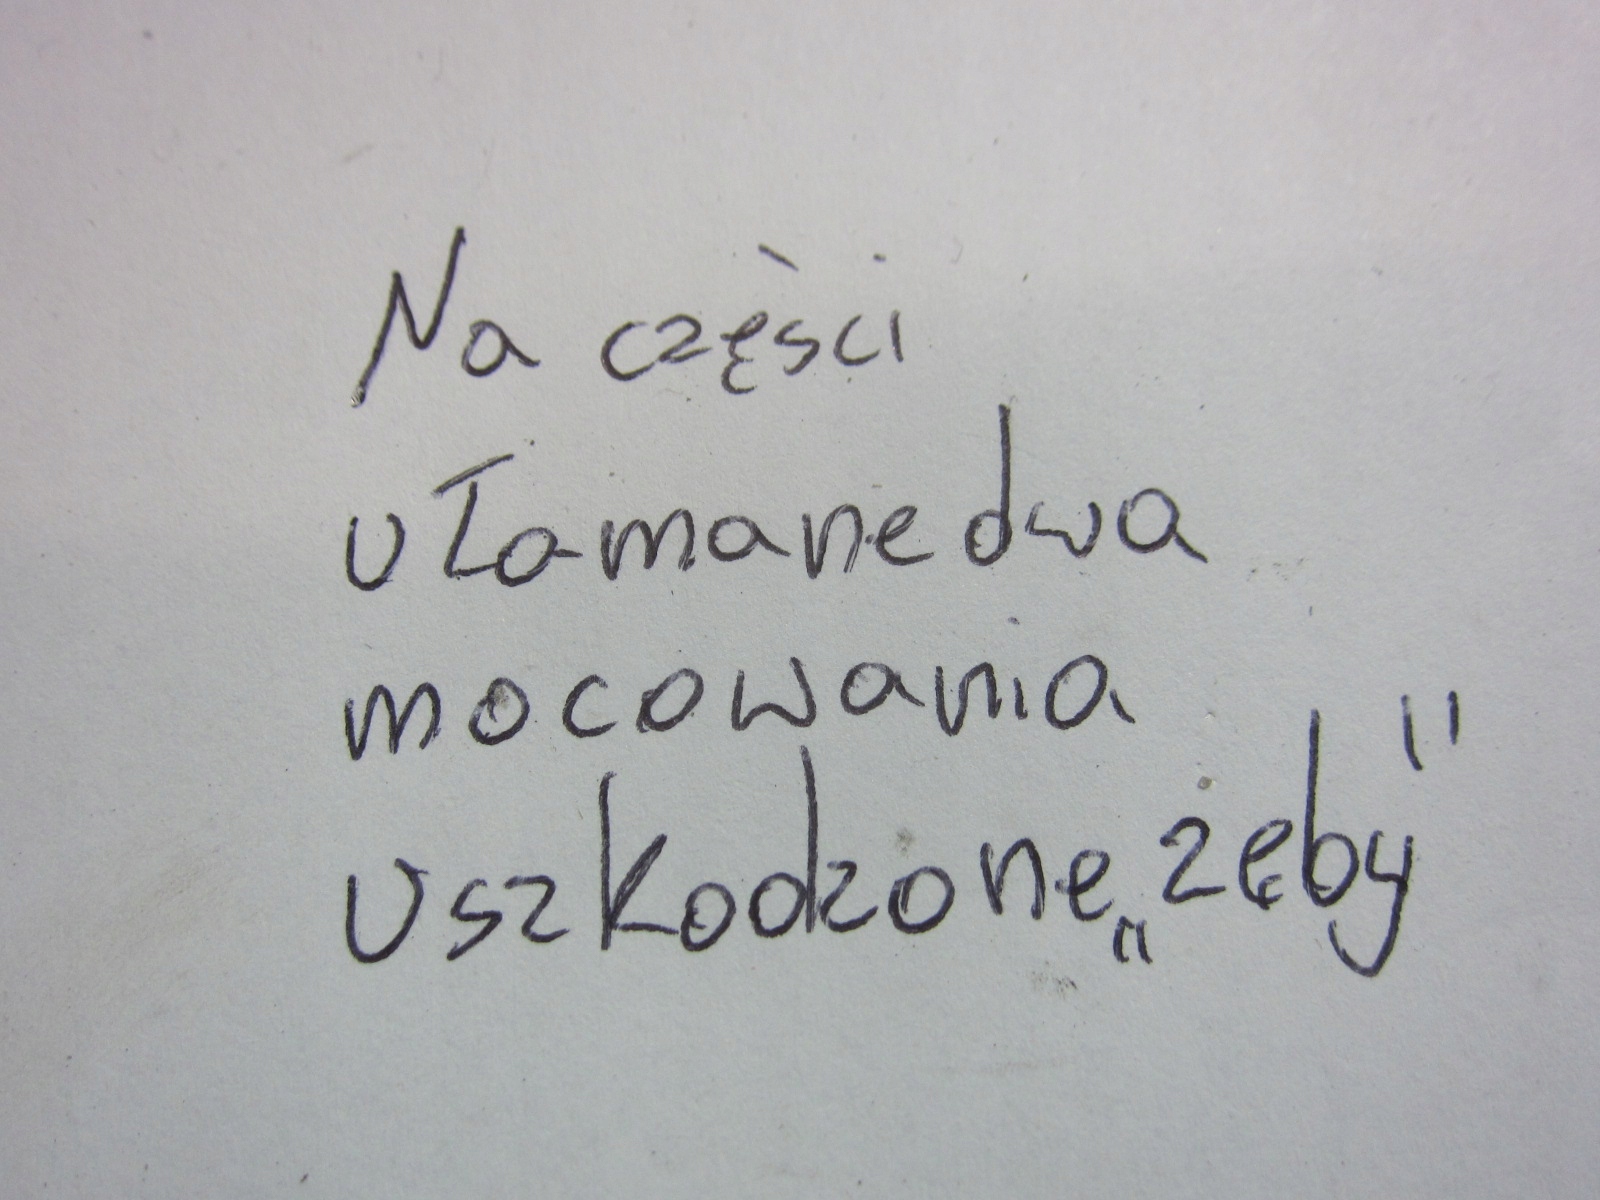 Na części
ułamane dwa
mocowania
uszkodzone „zęby"